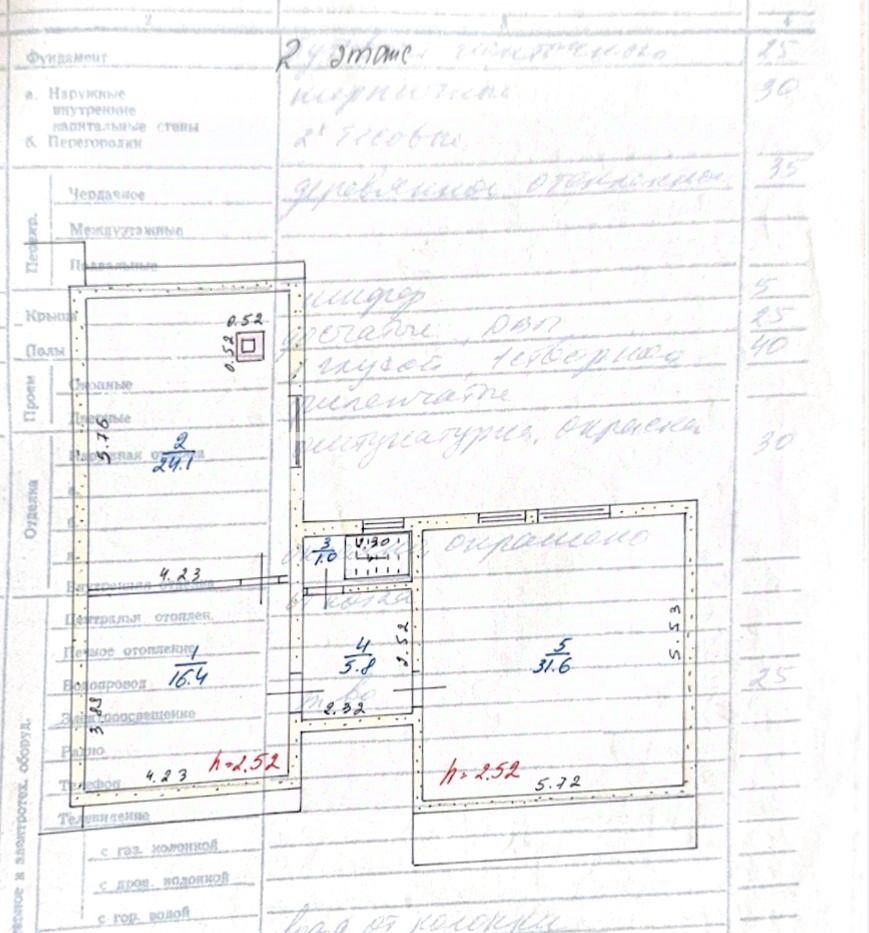 2 3 4
Фундамент 25
2 этаж
а. Наружные 30
внутренние
капитальные стены
б. Перегородки тесовые
Перекр.
Чердачное деревянное отепленное 35
Междуэтажные
Подвальные
Крыша шифер 5
Полы дощатые, ДВП 25
Проем
Оконные 1 глухой, 1 створный 40
Дверные филенчатые
Отделка
Наружная отделка штукатурка, окраска 30
а.
б.
в. окрашено
Внутренняя отделка
Централья отоплен. от котла
Печное отопление
Водопровод 25
Электроосвещение
Радио
Телефон
Телевидение
с газ. колонкой
с дров. колонкой
с гор. водой вода от колонки
электротех. оборуд.
0.52
0.52
5.76
2
24.1
4.23
3
1.0
1.30
1
16.4
3.88
4.23
h=2.52
4
5.8
2.52
2.32
5
31.6
5.53
h=2.52
5.72